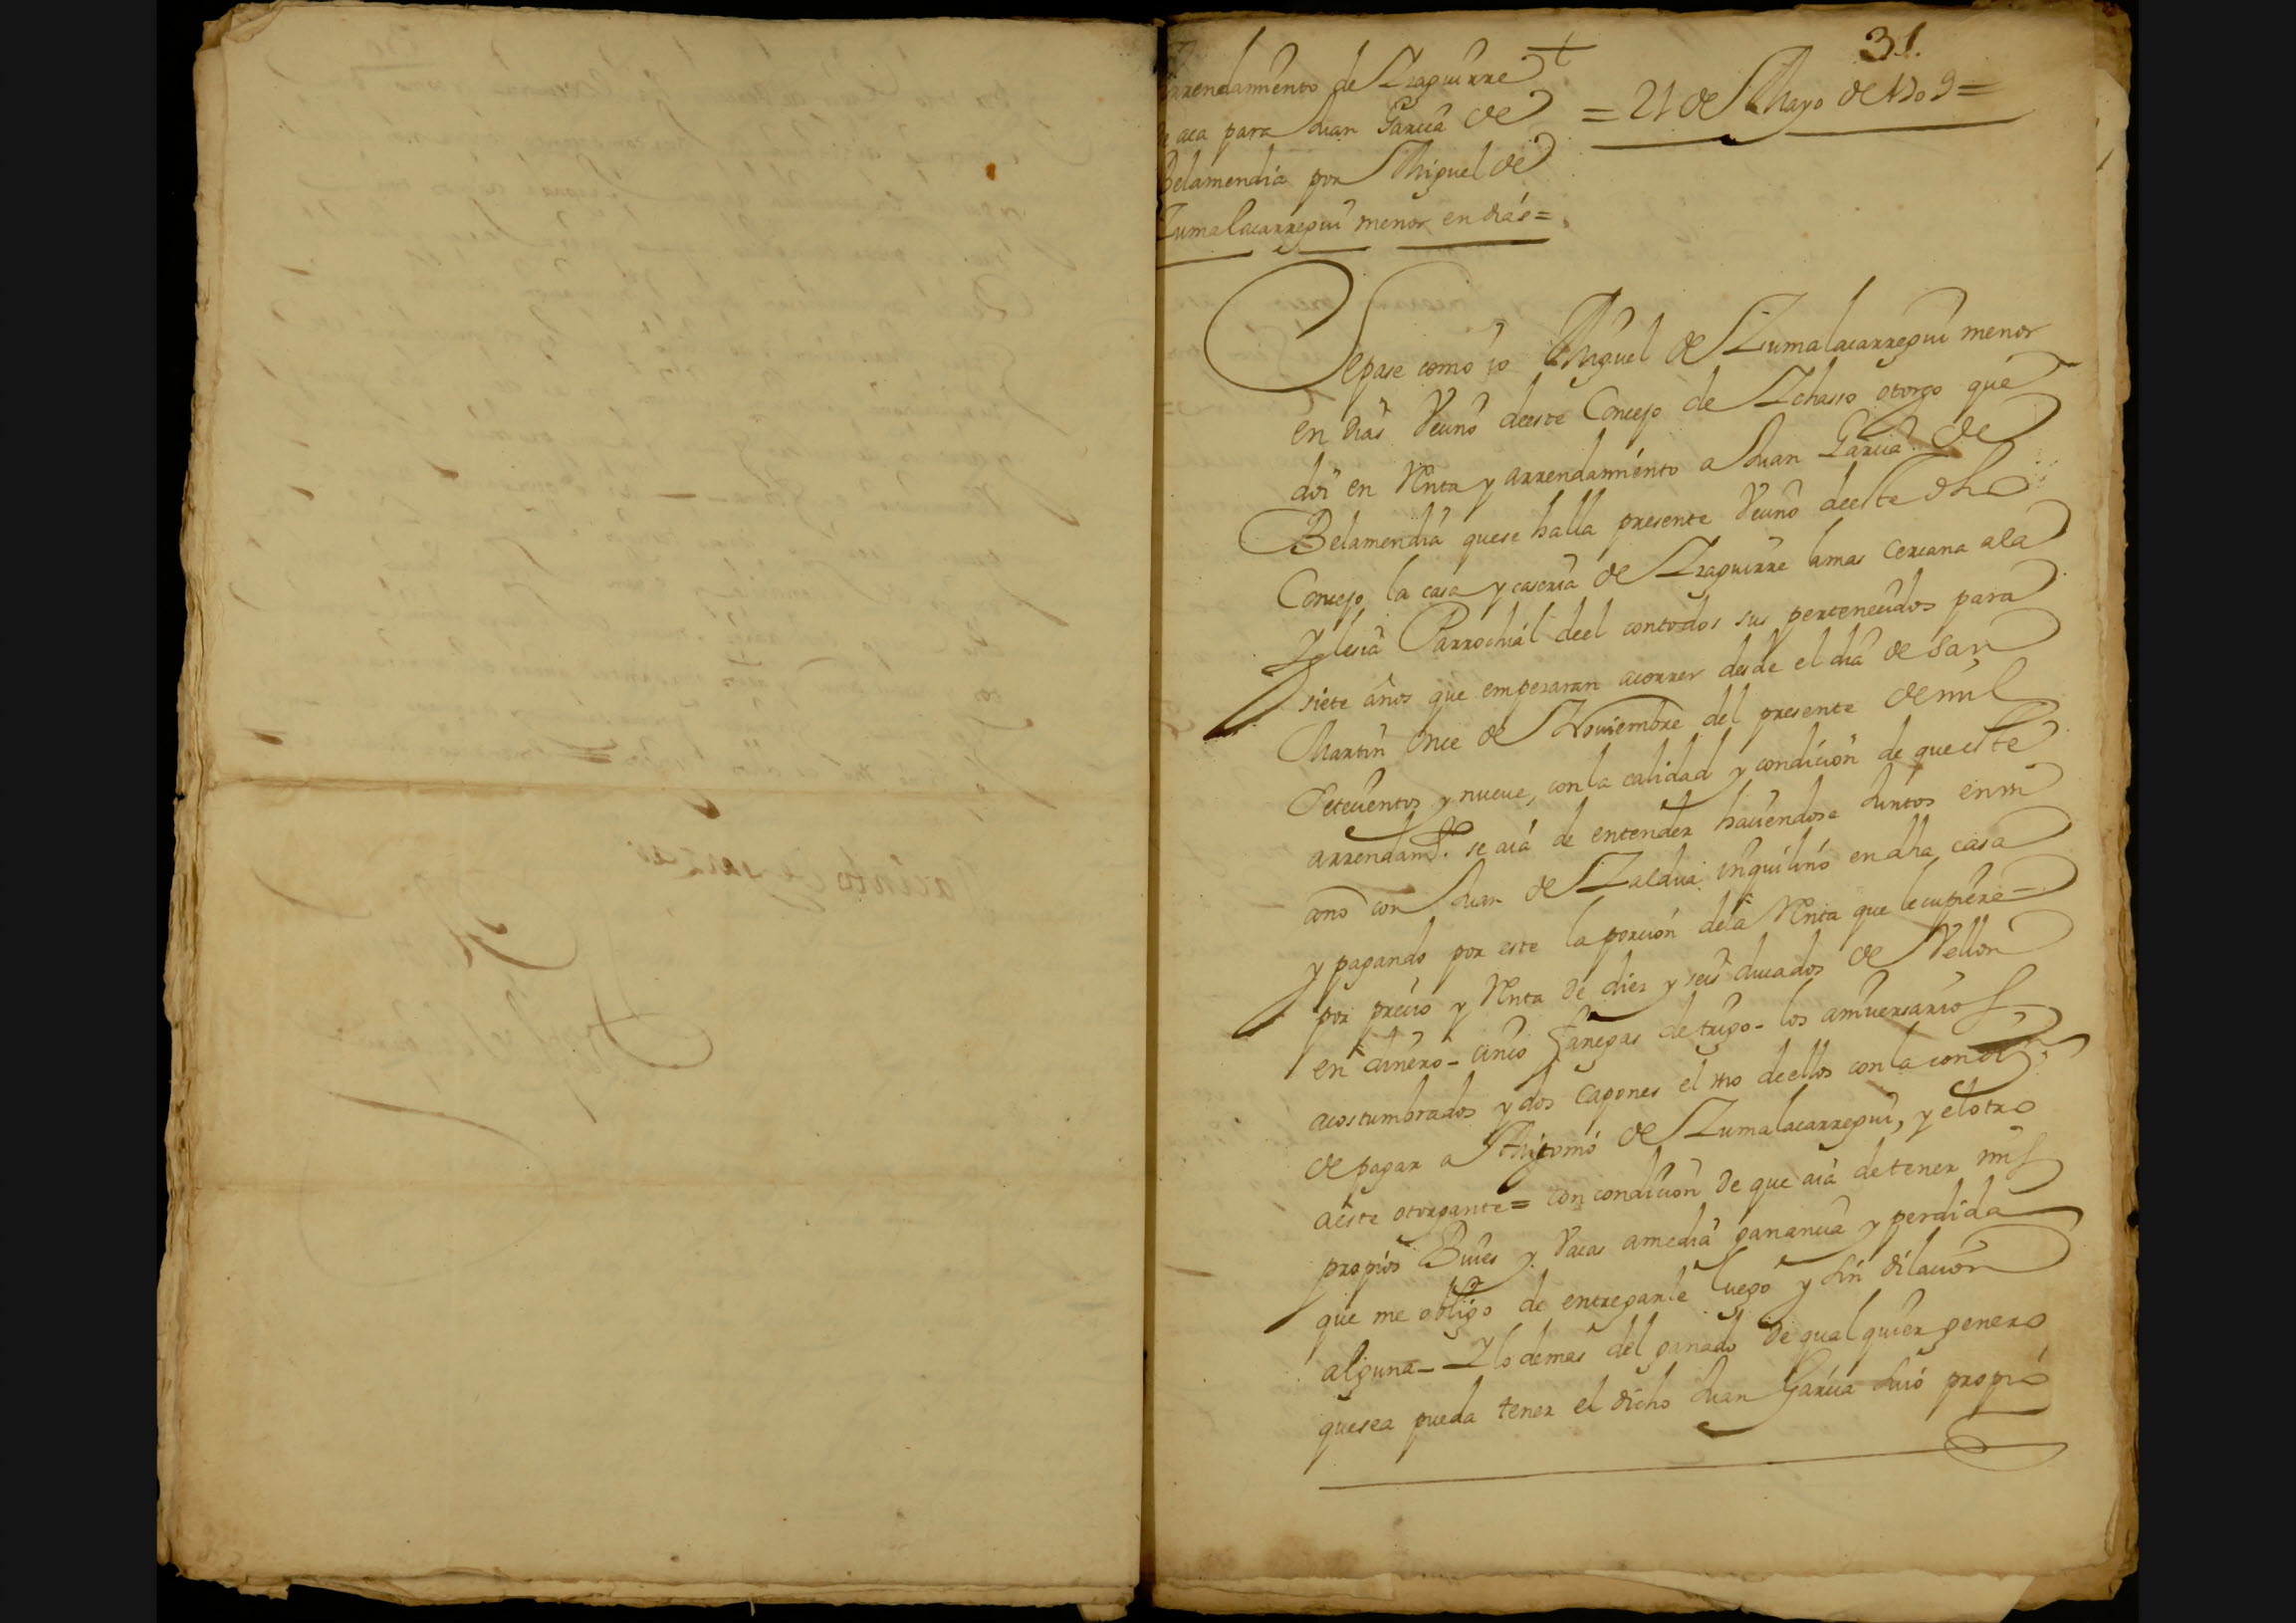 31.
arrendamiento de Yraguirre
de aca para Juan Garcia de
Belamendia por Miguel de
Zumalacarregui menor en dias=
=21 de Mayo de 1709=
Sepase como io Miguel de Zumalacarregui menor
en dias Vecino deeste Concejo de Ychasso otorgo que
doi en Renta y arrendamiento a Juan Garcia de
Belamendia quese halla presente Vecino deeste dho
Concejo la casa y caseria de Yraguirre lamas Cercana ala
Yglesia Parrochial deel contodos sus pertenecidos para
siete años que empezaran acorrer desde el dia de San
Martin Once de Noviembre del presente de mil
Setecientos y nueve, con la calidad y condicion de que este
arrendamto. se aia de entender haciendose Juntos en mi
ano con Juan de Zaldua inquilino en dha casa
y pagando por este la porcion dela Renta que le cupiere=
por precio y Renta de diez y seis ducados de Vellon
en dinero- cinco fanegas de trigo- los aniversarios
acostumbrados y dos Capones el uno deellos con la condn.
de pagar a Mi tomo de Zumalacarregui, y elotro
aeste otorgante= con condicion de que aia detener mis
propios Buies y Vacas amedia ganancia y perdida
que me obligo de entregarle luego y sin dilacion
alguna- Ylo demas del ganado de qualquier genero
quesea pueda tener el dicho Juan Garcia suio propio